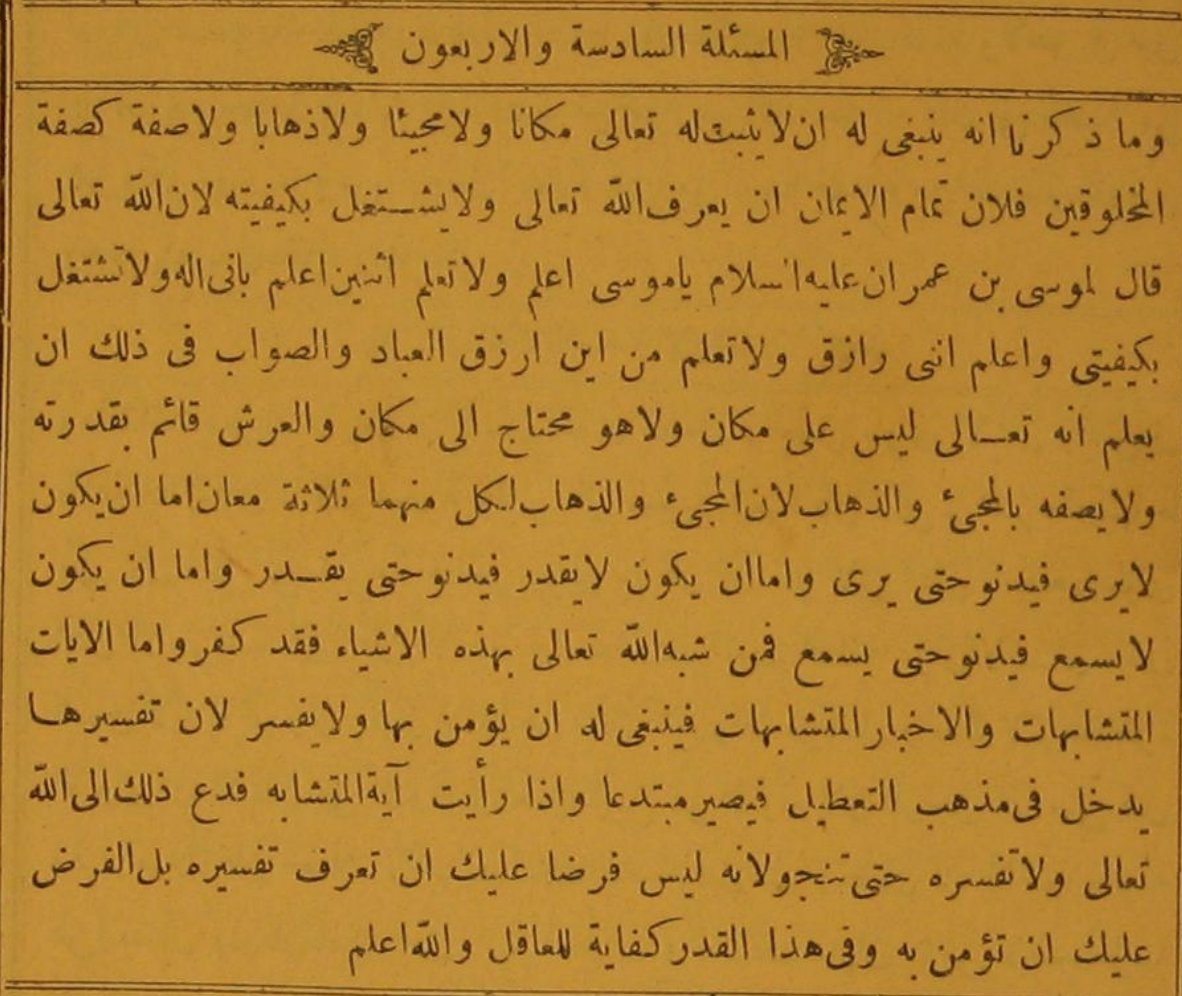 المسئلة السادسة والاربعون
وما ذكرنا انه ينبغى له ان لا يثبت له تعالى مكانا ولا مجيئا ولا ذهابا ولا صفة كصفة
المخلوقين فلان تمام الايمان ان يعرف الله تعالى ولا يشتغل بكيفيته لان الله تعالى
قال لموسى بن عمران عليه السلام ياموسى اعلم ولا تعلم اثنين اعلم بانى اله ولا تشتغل
بكيفيتى واعلم اننى رازق ولا تعلم من اين ارزق العباد والصواب فى ذلك ان
يعلم انه تعالى ليس على مكان ولا هو محتاج الى مكان والعرش قائم بقدرته
ولا يصفه بالمجىء والذهاب لان المجىء والذهاب لكل منهما ثلاثة معان اما ان يكون
لا يرى فيدنو حتى يرى واما ان يكون لا يقدر فيدنو حتى يقدر واما ان يكون
لا يسمع فيدنو حتى يسمع فمن شبه الله تعالى بهذه الاشياء فقد كفر واما الايات
المتشابهات والاخبار المتشابهات فينبغى له ان يؤمن بها ولا يفسر لان تفسيرها
يدخل فى مذهب التعطيل فيصير مبتدعا واذا رأيت آية المتشابه فدع ذلك الى الله
تعالى ولا تفسره حتى تنجو ولانه ليس فرضا عليك ان تعرف تفسيره بل الفرض
عليك ان تؤمن به وفى هذا القدر كفاية للعاقل والله اعلم